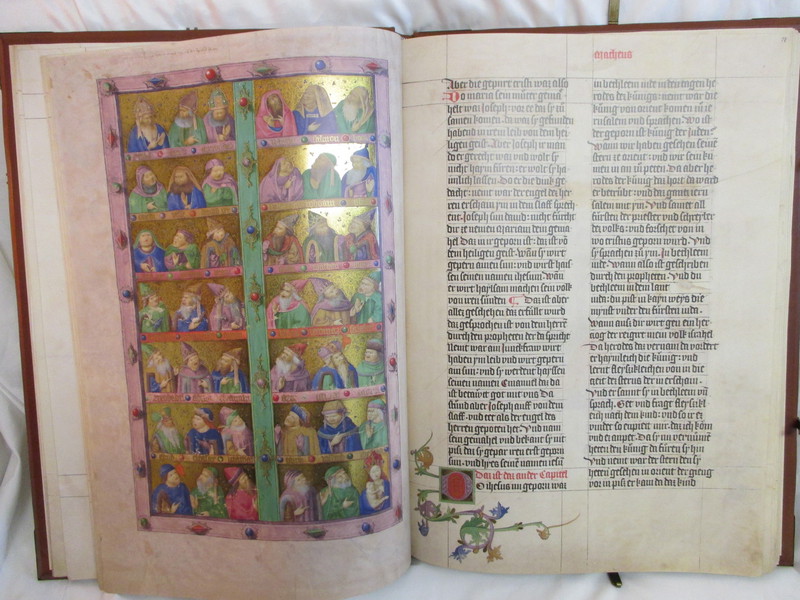 Matheus
Aber die gepurt cristi waz also
Do maria sein muter gema=
helt waz Joseph vor ee da sy zu
samen komen. da ward sy gefunden
habend in irem leib von dem hei=
ligen geist. Aber Joseph ir man
do er gerecht waz vnd wolt sy
nicht
dacht: nemt war der engel des her=
ren erschain ym in dem slaff sprech=
ent. Joseph sun dauid: nicht fürcht
dir ze nemen mariam dein gema=
hel Daz in ir geporn ist: daz ist vō
dem heiligen geist. Wan sy wirt
gepern ainen sun: vnd wirst haiß=
sen seinen namen ihesum
er wirt haylsam machen sein volk
von iren sünden Daz ist aber
alles geschehen daz erfüllt wurd
daz gesprochen ist von dem herrē
durch den propheten der da spricht
Nemt war ain junckfraw wirt
haben ym leib vnd wirt gepern
ain sun: vnd sy werdent hayssen
seinen namen Emanuel daz da
ist betawtet got mit vns Da
stund aber Joseph auff von dem
slaff. vnd tet als der engel des
herren gepoten het. Vnd nam
sein gemahel vnd bekant sy nit
piß daz sy gepar iren erst geporn
sun. vnd hyes seinen namen ihesū
Daz ist daz ander Capitel
Do ihesus nu geporn waz
in bethleem iude in den tagen he=
rodes des künigs: nemt war die
künig von orient komen in ie=
rusalem vnd sprachen. Wo ist
der geporn ist künig der Juden
Wann wir haben gesehen seinē
stern ze orient: vnd wir sein ku=
men in an zu peten. Da aber he=
rodes der künig daz hort da ward
er betrübt: vnd daz gantz ieru=
salem mit ym. Vnd samet all
fürsten der priester vnd schreyber
des volks: vnd forschet von in
wo cristus geporn wurd. Vnd
sy sprachen zu ym. In bethleem
iude. Wann also ist geschriben
durch den propheten. Vnd du
bethleem in dem lant
iuda: du pist in kayn weys die
mynst in den fürsten iuda.
Wann auß dir wirt geen ein her=
zog der regirt mein volk israhel
Da herodes daz vernam da vordert
er haymleich die künig: vnd
lernt fleyssikleichen von in die
zeit des sterns der in erschain.
Vnd er sannt sy in bethleem vnd
sprach. Get vnd fragt fleyssikl=
eich nach dem kind: vnd so ir ez
vindet so enpiett mir: daz ich kom
vnd ez anpet. Da sy
heten den künig da fůren sy hin
Vnd nemt war der stern den sy
heten gesehen in orient der gieng
vor in piß er kom da daz kind